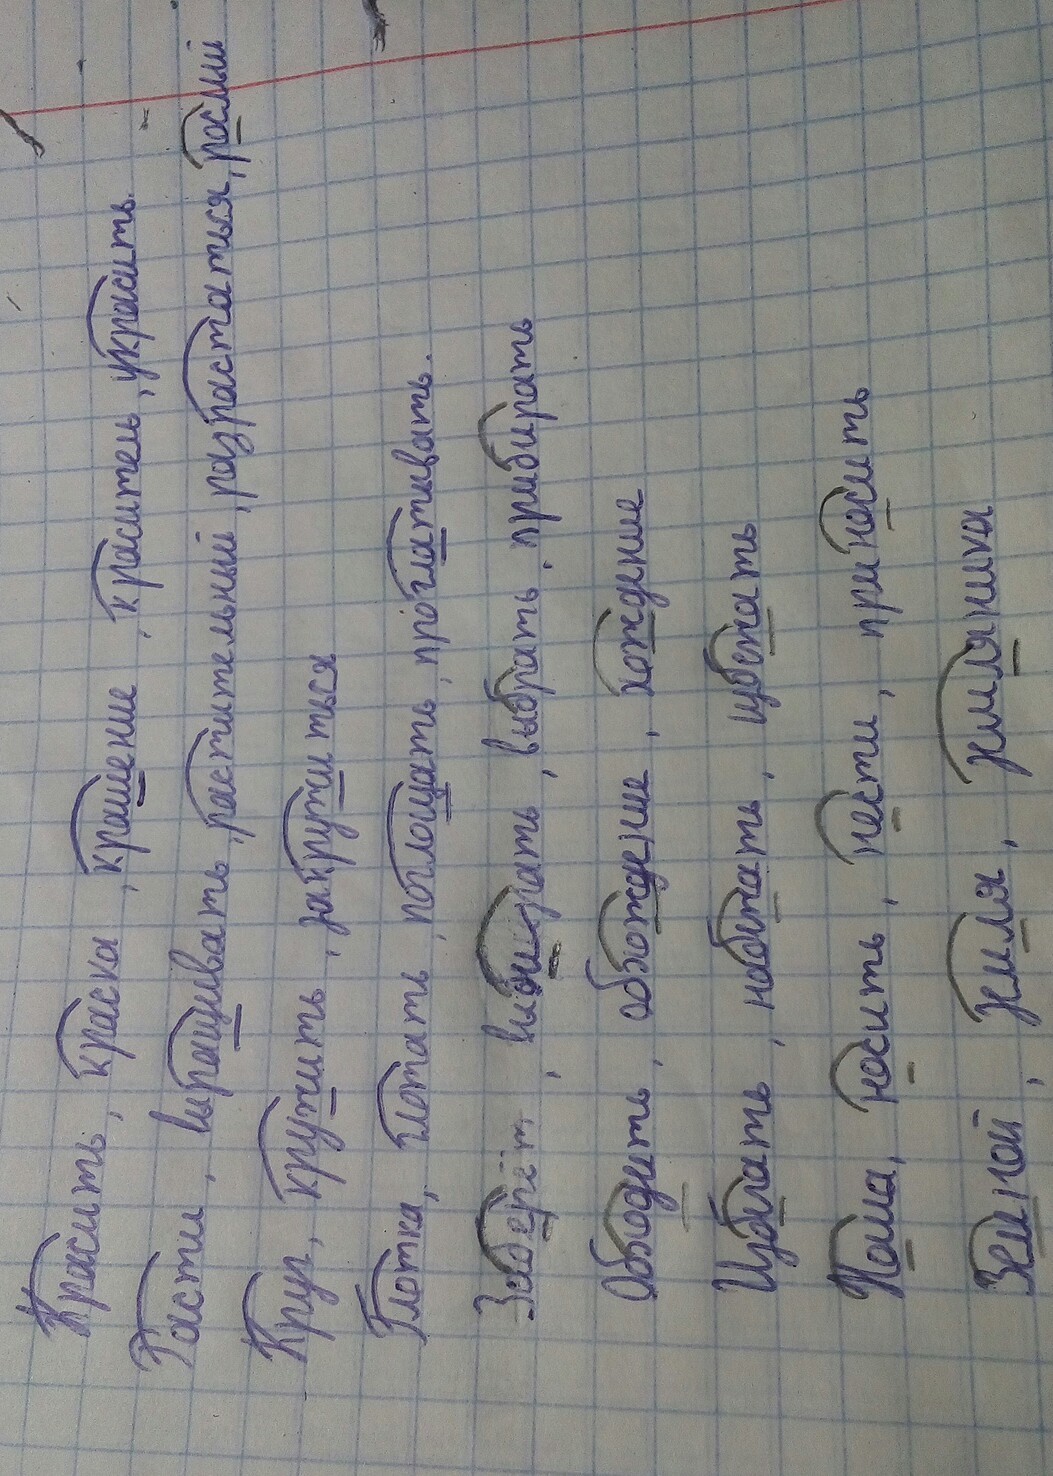 Красить, краска, крашение, краситель, украсить.
Расти, выращивать, растительный, разрастаться, рослый
Круг, кружить, закружиться
Глотка, глотать, поглощать, проглатывать.
выбирать, выбрать, прибирать
обхождение, хождение
носить, нести, приносить
Земной, земля, земляника